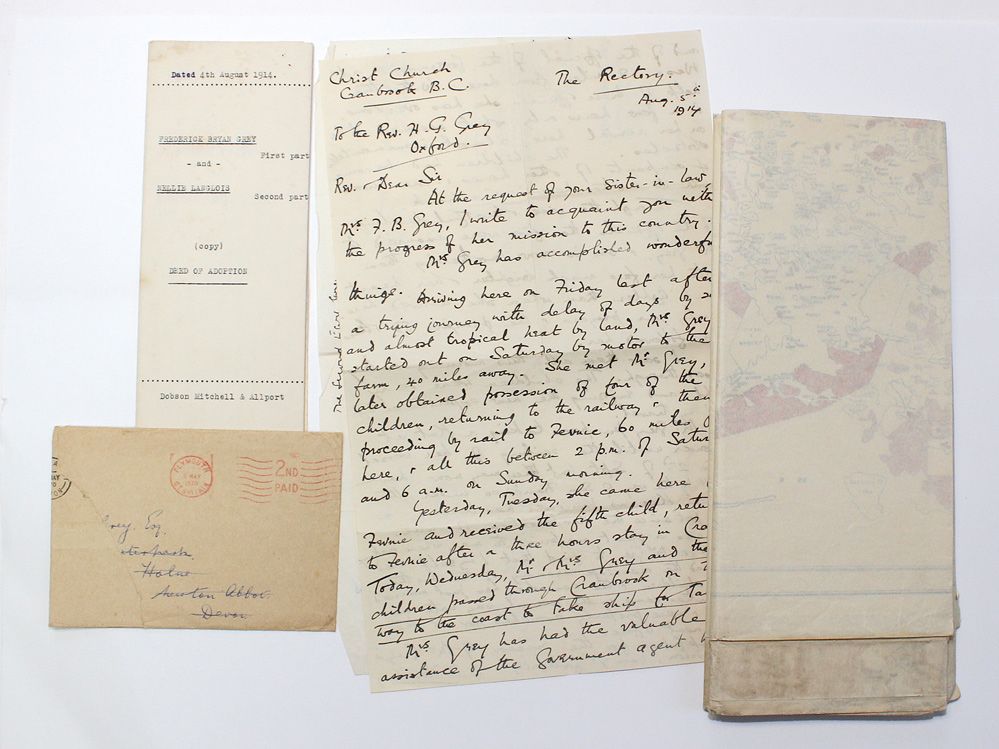 Dated 4th August 1914.
FREDERICK BRYAN GREY
First part
- and -
NELLIE LANGLOIS
Second part
(copy)
DEED OF ADOPTION
Dobson Mitchell & Allport
PLYMOUTH
MAY
2ND
PAID
Grey. Esq.
Holne
Newton Abbot.
Devon
Christ Church
Cranbrook B.C.
The Rectory.
Aug. 5th
1914
To the Rev. H. G. Grey
Oxford.
Rev. Dear Sir
At the request of your Sister-in-law
Mrs F. B. Grey, I write to acquaint you with
the progress of her mission to this country.
Mrs Grey has accomplished wonderful
things. Arriving here on Friday last after
a trying journey with delay of days by
and almost tropical heat by land, Mrs Grey
started out on Saturday by motor to the
farm, 40 miles away. She met Mr Grey,
later obtained possession of four of the
children, returning to the railway & then
proceeding by rail to Fernie, 60 miles
here, & all this between 2 p.m. of Satur
and 6 a.m. on Sunday morning.
Yesterday, Tuesday, she came here
Fernie and received the fifth child, retu
to Fernie after a three hours stay in Cra
Today, Wednesday, Mr & Mrs Grey and the
children passed through Cranbrook on
way to the coast to take ship for Ta
Mrs Grey has had the valuable
assistance of the Government agent